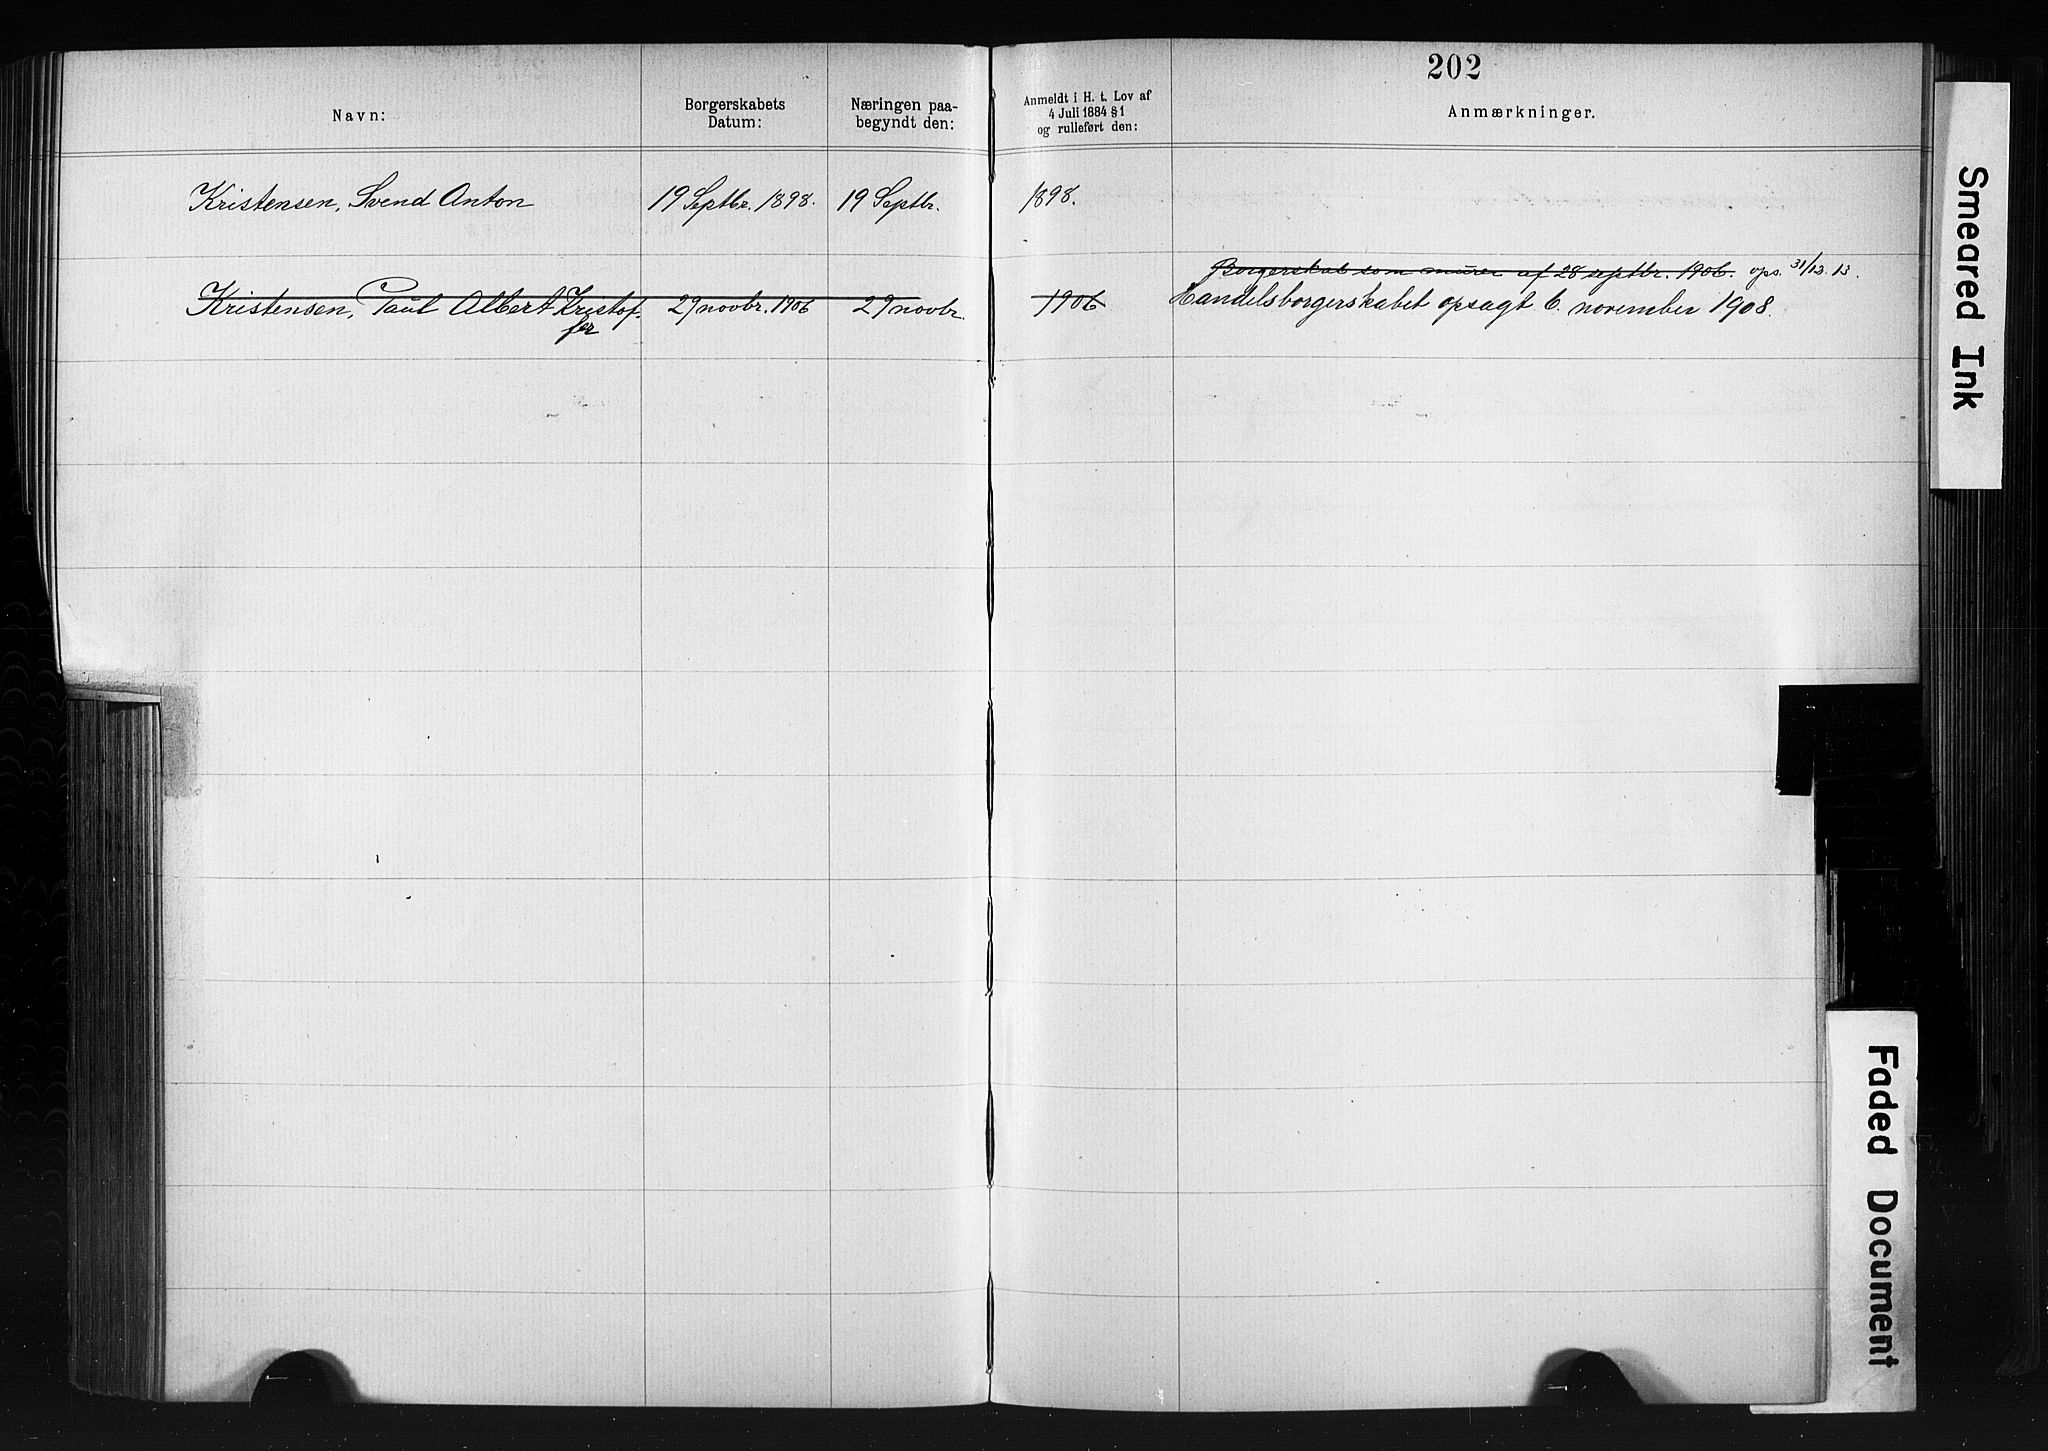 202
Navn:
Borgerskabets
Datum:
Næringen paa-
begyndt den:
Anmeldt i H. t. Lov af
4 Juli 1884 § 1
og rulleført den:
Anmærkninger.
Kristensen, Svend Anton 19 Septbr. 1898. 19 Septbr. 1898.
Borgerskab som murer af 28 septbr. 1906. ops. 31/12. 13.
Kristensen, Paul Albert Kristof- 29 novbr. 1906 29 novbr. 1906 Handelsborgerskabet opsagt 6. november 1908.
fer
Smeared Ink
Faded Document